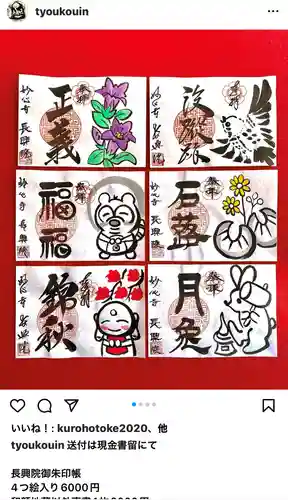 tyoukouin
奉拝
正義
妙心寺 長興院
奉拝
妙心寺 長興院
奉拝
福福
妙心寺 長興院
奉拝
石蕗
妙心寺 長興院
奉拝
錦秋
妙心寺 長興院
奉拝
月兎
妙心寺 長興院
いいね！: kurohotoke2020、他
tyoukouin 送付は現金書留にて
長興院御朱印帳
4つ絵入り6000円